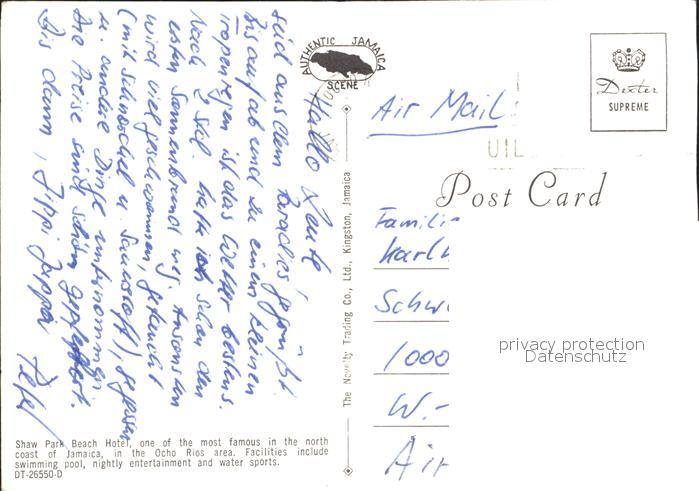 AUTHENTIC JAMAICA
SCENE
Dexter
SUPREME
Air Mail
Post Card
Hallo Leute,
seid aus dem Paradies gegrüßt.
Bis auf ab und zu einen kleinen
Tropenregen ist das Wetter bestens.
Nach 2 hatte ich schon den
ersten Sonnenbrand weg. Ansonsten
wird viel geschwommen, getaucht
(mit Schnorchel u. Sauerstoff), gegessen
u. andere Dinge unternommen
Die Preise sind schön gepfeffert.
Bis dann,
The Novelty Trading Co., Ltd., Kingston, Jamaica
Familie
Karl
Schw
1000
W.-
Air
privacy protection
Datenschutz
Shaw Park Beach Hotel, one of the most famous in the north
coast of Jamaica, in the Ocho Rios area. Facilities include
swimming pool, nightly entertainment and water sports.
DT-26550-D